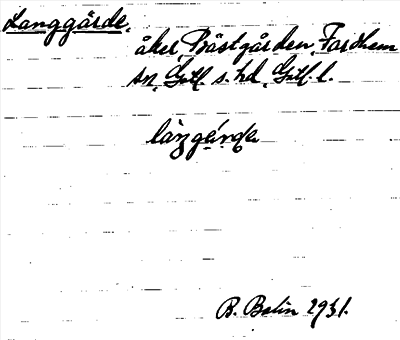 Langgärde,
åker, Bästgården, Fardhem
sn, Gotl. s. hd, Gotl. l.
B. Belin 1931.